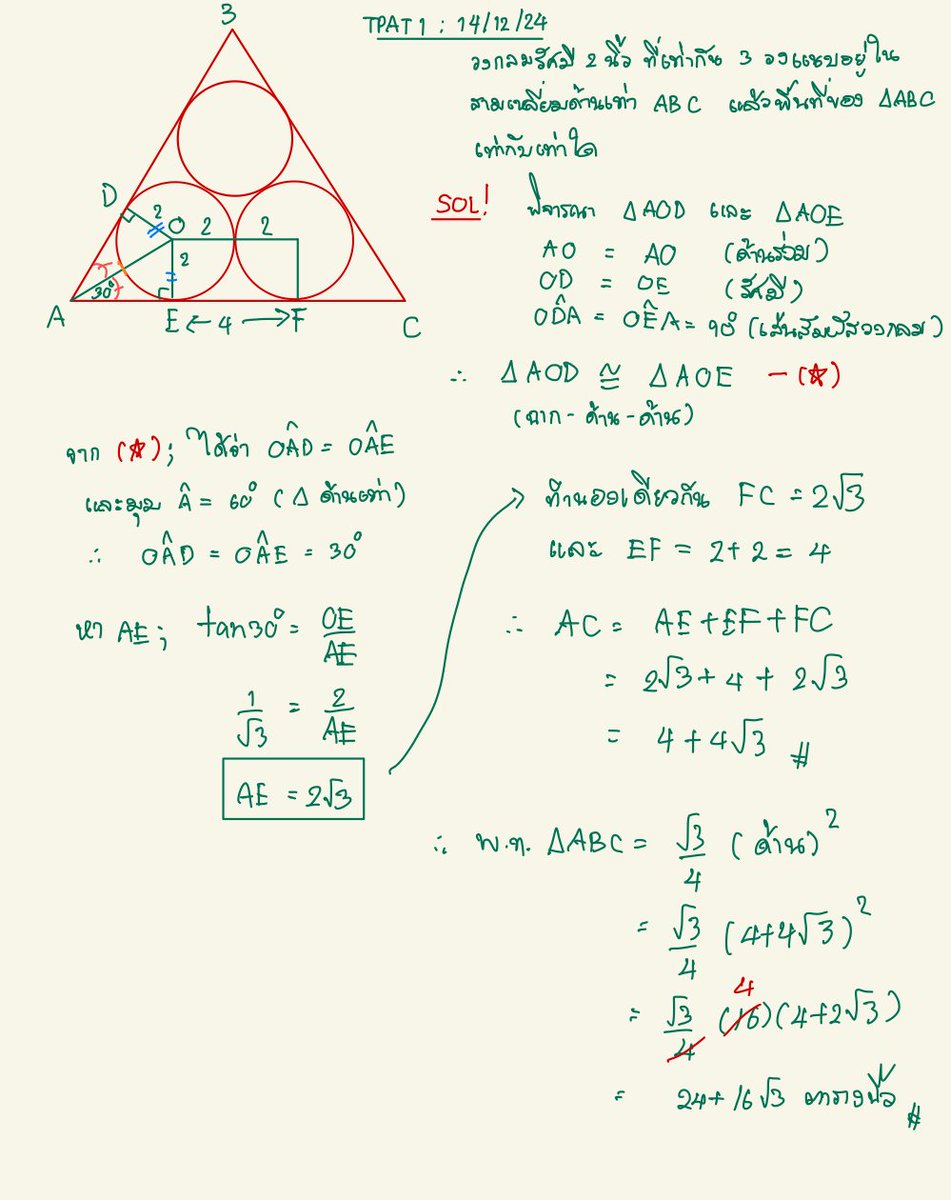 TPAT 1 : 14/12/24
วงกลมรัศมี 2 นิ้ว ที่เท่ากัน 3 วงแนบอยู่ใน
สามเหลี่ยมด้านเท่า ABC แล้วพื้นที่ของ ΔABC
เท่ากับเท่าใด
B
D
2
O
2
2
2
30°
A
E
← 4 →
F
C
SOL!
พิจารณา ΔAOD และ ΔAOE
AO = AO (ด้านร่วม)
OD = OE (รัศมี)
OD̂A = OÊA = 90° (เส้นสัมผัสวงกลม)
∴ ΔAOD ≅ ΔAOE – (☆)
(ฉาก - ด้าน - ด้าน)
จาก (☆); ได้ว่า OÂD = OÂE
และมุม Â = 60° (Δ ด้านเท่า)
∴ OÂD = OÂE = 30°
หา AE; tan30° = OE/AE
1/√3 = 2/AE
AE = 2√3
ทำนองเดียวกัน FC = 2√3
และ EF = 2+2 = 4
∴ AC = AE+EF+FC
= 2√3 + 4 + 2√3
= 4+4√3 #
∴ พ.ท. ΔABC = √3/4 (ด้าน)²
= √3/4 (4+4√3)²
4
= √3/4 (16)(4+2√3)
= 24+16√3 ตารางนิ้ว #